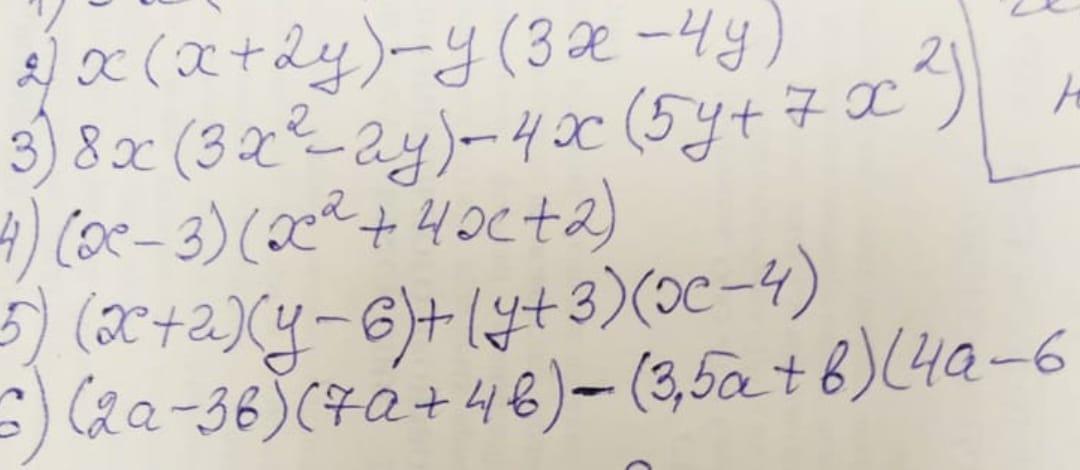 2) x(x+2y)-y(3x-4y)
3) 8x(3x²-2y)-4x(5y+7x²)
4) (x-3)(x²+4x+2)
5) (x+2)(y-6)+(y+3)(x-4)
6) (2a-3в)(7a+4в)-(3,5a+в)(4a-6